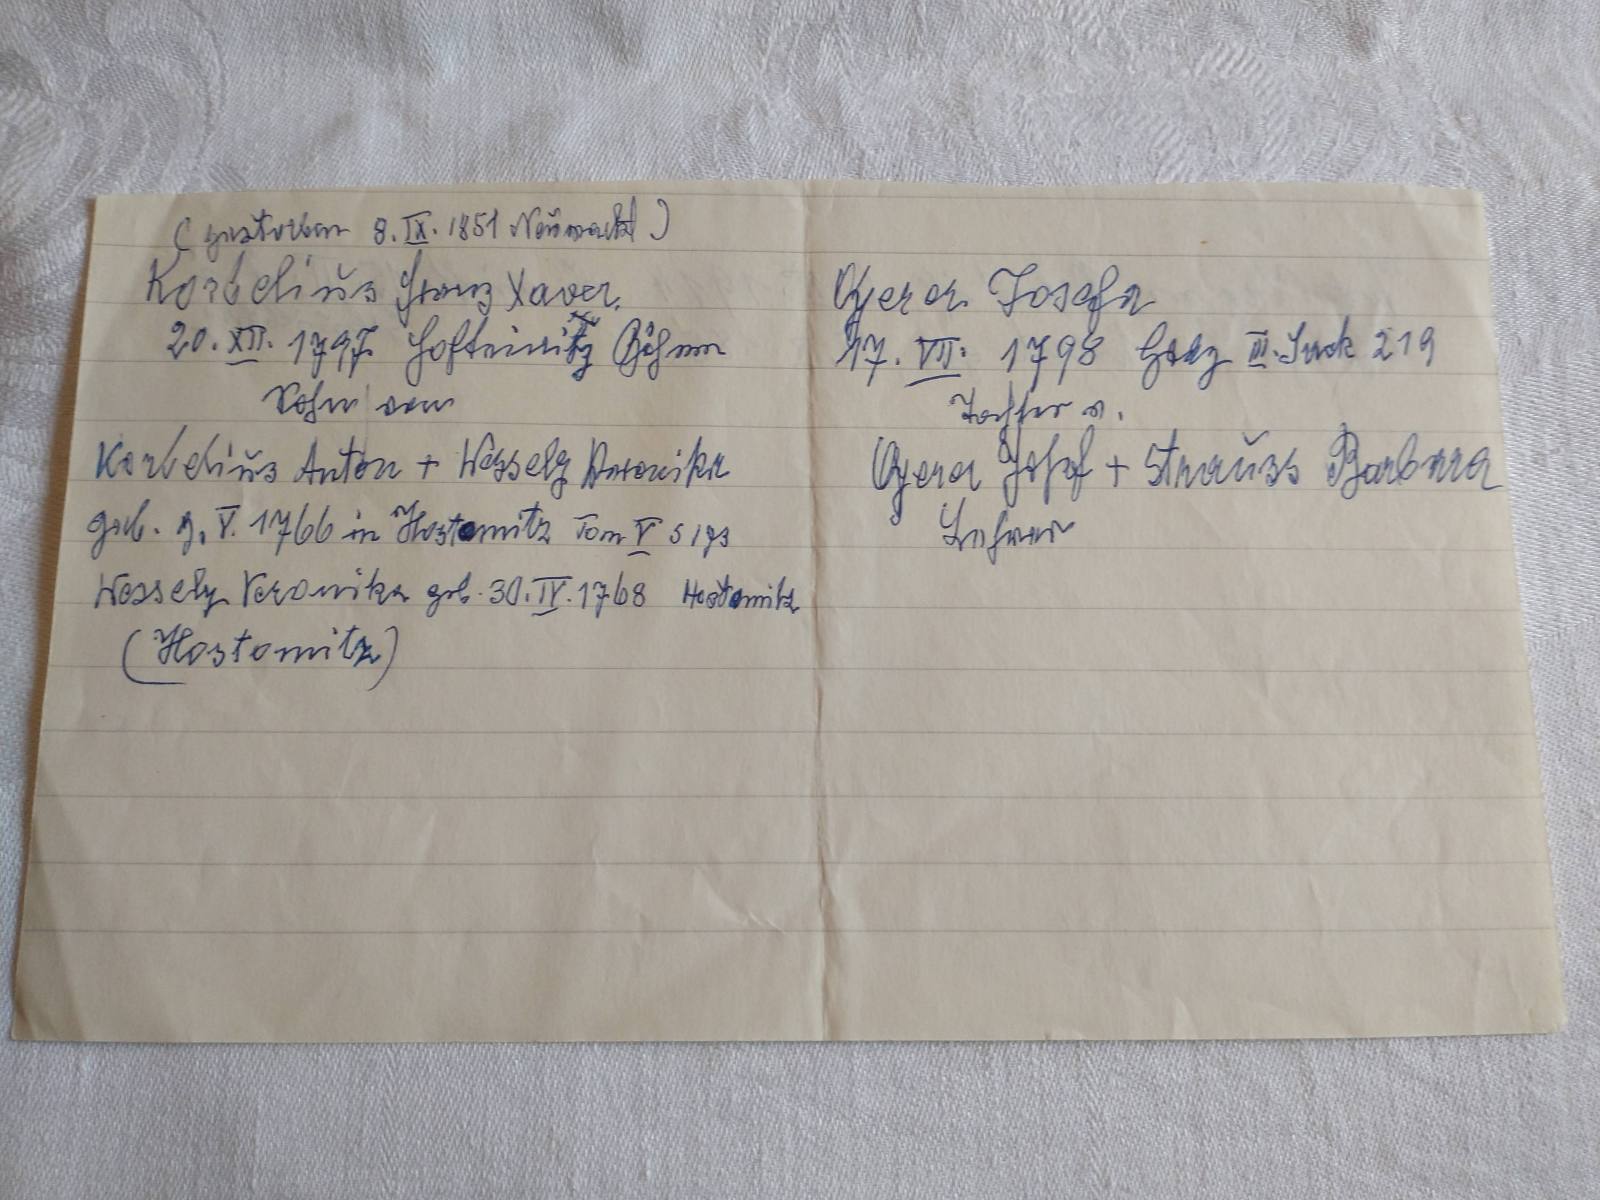 (gestorben 8. IX. 1851 Neumarkt)
Korbelius Franz Xaver.
20. XII. 1797 Hostomitz Böhmen
Sohn von
Korbelius Anton + Wessely Veronika
geb. 9. V. 1766 in Hostomitz Tom V S 193
Wessely Veronika geb. 30. IV. 1768 Hostomitz
(Hostomitz)
Josefa
17. VII. 1798 Graz III. Sack 219
Tochter v.
Josef + Strauss Barbara